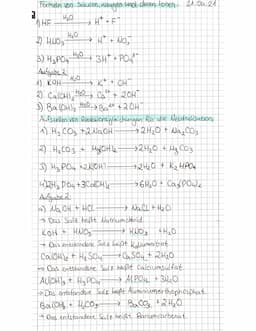 Formeln von Säuren, Laugen und deren Ionen. 21.04.21
1) HF —H₂O→ H⁺ + F⁻
2) HNO₃ —H₂O→ H⁺ + NO₃⁻
3) H₃PO₄ —H₂O→ 3H⁺ + PO₄³⁻
Aufgabe 2:
1) KOH —H₂O→ K⁺ + OH⁻
2) Ca(OH)₂ —H₂O→ Ca²⁺ + 2OH⁻
3) Ba(OH)₂ —H₂O→ Ba²⁺ + 2OH⁻
Aufstellen von Reaktionsgleichungen für die Neutralisation
1) H₂CO₃ + 2NaOH → 2H₂O + Na₂CO₃
2) H₂CO₃ + Mg(OH)₂ → 2H₂O + MgCO₃
3) H₃PO₄ + 2KOH → 2H₂O + K₂HPO₄
4) 2H₃PO₄ + 3Ca(OH)₂ → 6H₂O + Ca₃(PO₄)₂
Aufgabe 2:
NaOH + HCl → NaCl + H₂O
→ Das Salz heißt Natriumchlorid
KOH + HNO₃ → KNO₃ + H₂O
→ Das entstandene Salz heißt Kaliumnitrat
Ca(OH)₂ + H₂SO₄ → CaSO₄ + 2H₂O
→ Das entstandene Salz heißt Calciumsulfat
Al(OH)₃ + H₃PO₄ → AlPO₄ + 3H₂O
→ Das entstandene Salz heißt Aluminiumorthophosphat
Ba(OH)₂ + H₂CO₃ → BaCO₃ + 2H₂O
→ Das entstandene Salz heißt Bariumcarbonat